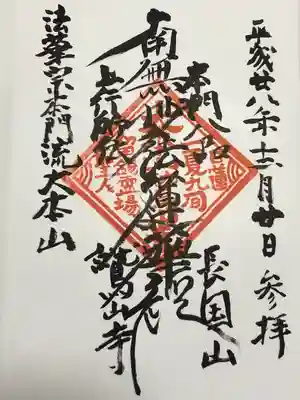 平成廿八年十二月廿日 参拝
長国山
鷲山寺
本門八品
南無妙法蓮華経
上行所伝
日蓮
一夏九旬
留錫霊場
法華宗本門流大本山